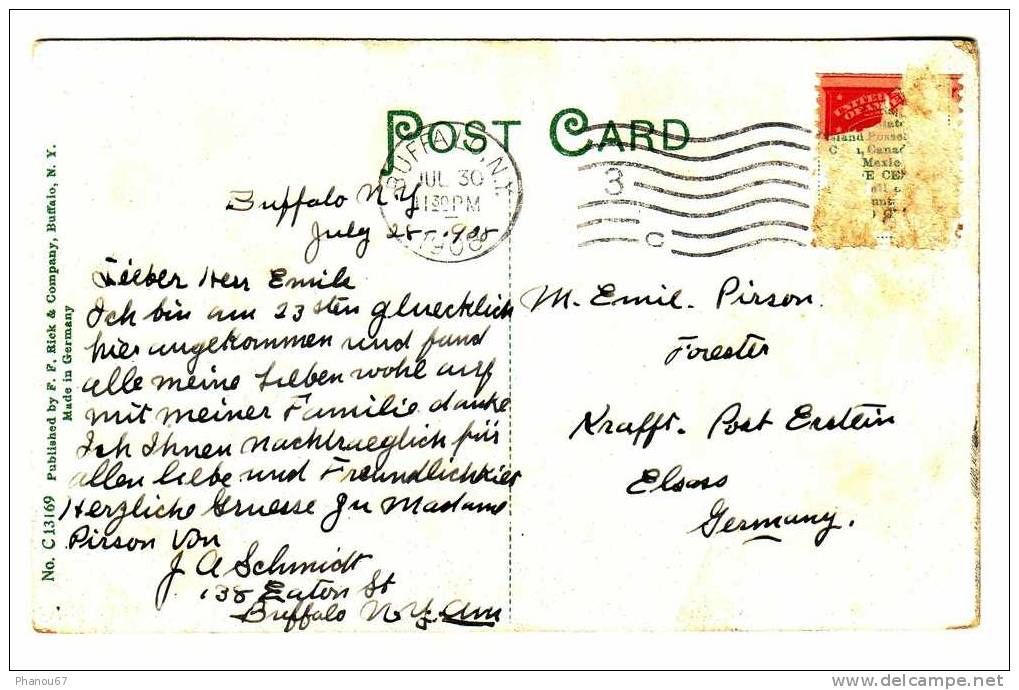 POST CARD
BUFFALO, N.Y.
JUL 30
11 30 PM
1908
3
C
UNITED
Island Posses
Cana
Mexic
E CE
Buffalo N.Y.
July 28 - 1908
Lieber Herr Emile
Ich bin am 23sten gluecklich
hier angekommen und fand
alle meine Lieben wohl auf
mit meiner Familie danke
Ich Ihnen nachtraeglich für
allen liebe und Freundlichkeit
Herzliche Gruesse zu Madame
Pirson von
J A Schmidt
138 Eaton St
Buffalo N.Y. Am
M. Emil. Pirson.
Forester
Krafft. Post Erstein
Elsass
Germany.
No. C 13169 Published by F. F. Rick & Company, Buffalo, N. Y.
Made in Germany
Phanou67
www.delcampe.net